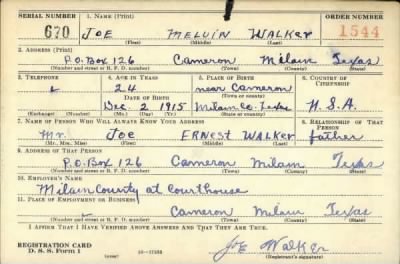 SERIAL NUMBER 1. NAME (Print) ORDER NUMBER
670 JOE MELVIN WALKER 1544
(First) (Middle) (Last)
2. ADDRESS (Print)
P.O. Box 126 Cameron Milam Texas
(Number and street or R. F. D. number) (Town) (County) (State)
3. TELEPHONE 4. AGE IN YEARS 5. PLACE OF BIRTH 6. COUNTRY OF CITIZENSHIP
24 near Cameron
DATE OF BIRTH (Town or county)
Dec. 2 1915 Milam Co. Texas U.S.A.
(Exchange) (Number) (Mo.) (Day) (Yr.) (State or country)
7. NAME OF PERSON WHO WILL ALWAYS KNOW YOUR ADDRESS 8. RELATIONSHIP OF THAT PERSON
Mr. JOE ERNEST WALKER father
(Mr., Mrs., Miss) (First) (Middle) (Last)
9. ADDRESS OF THAT PERSON
P.O. Box 126 Cameron Milam Texas
(Number and street or R. F. D. number) (Town) (County) (State)
10. EMPLOYER'S NAME
Milam County at courthouse
11. PLACE OF EMPLOYMENT OR BUSINESS
Cameron Milam Texas
(Number and street or R. F. D. number) (Town) (County) (State)
I AFFIRM THAT I HAVE VERIFIED ABOVE ANSWERS AND THAT THEY ARE TRUE.
Joe Walker
REGISTRATION CARD
D. S. S. Form 1 (over) (Registrant's signature)